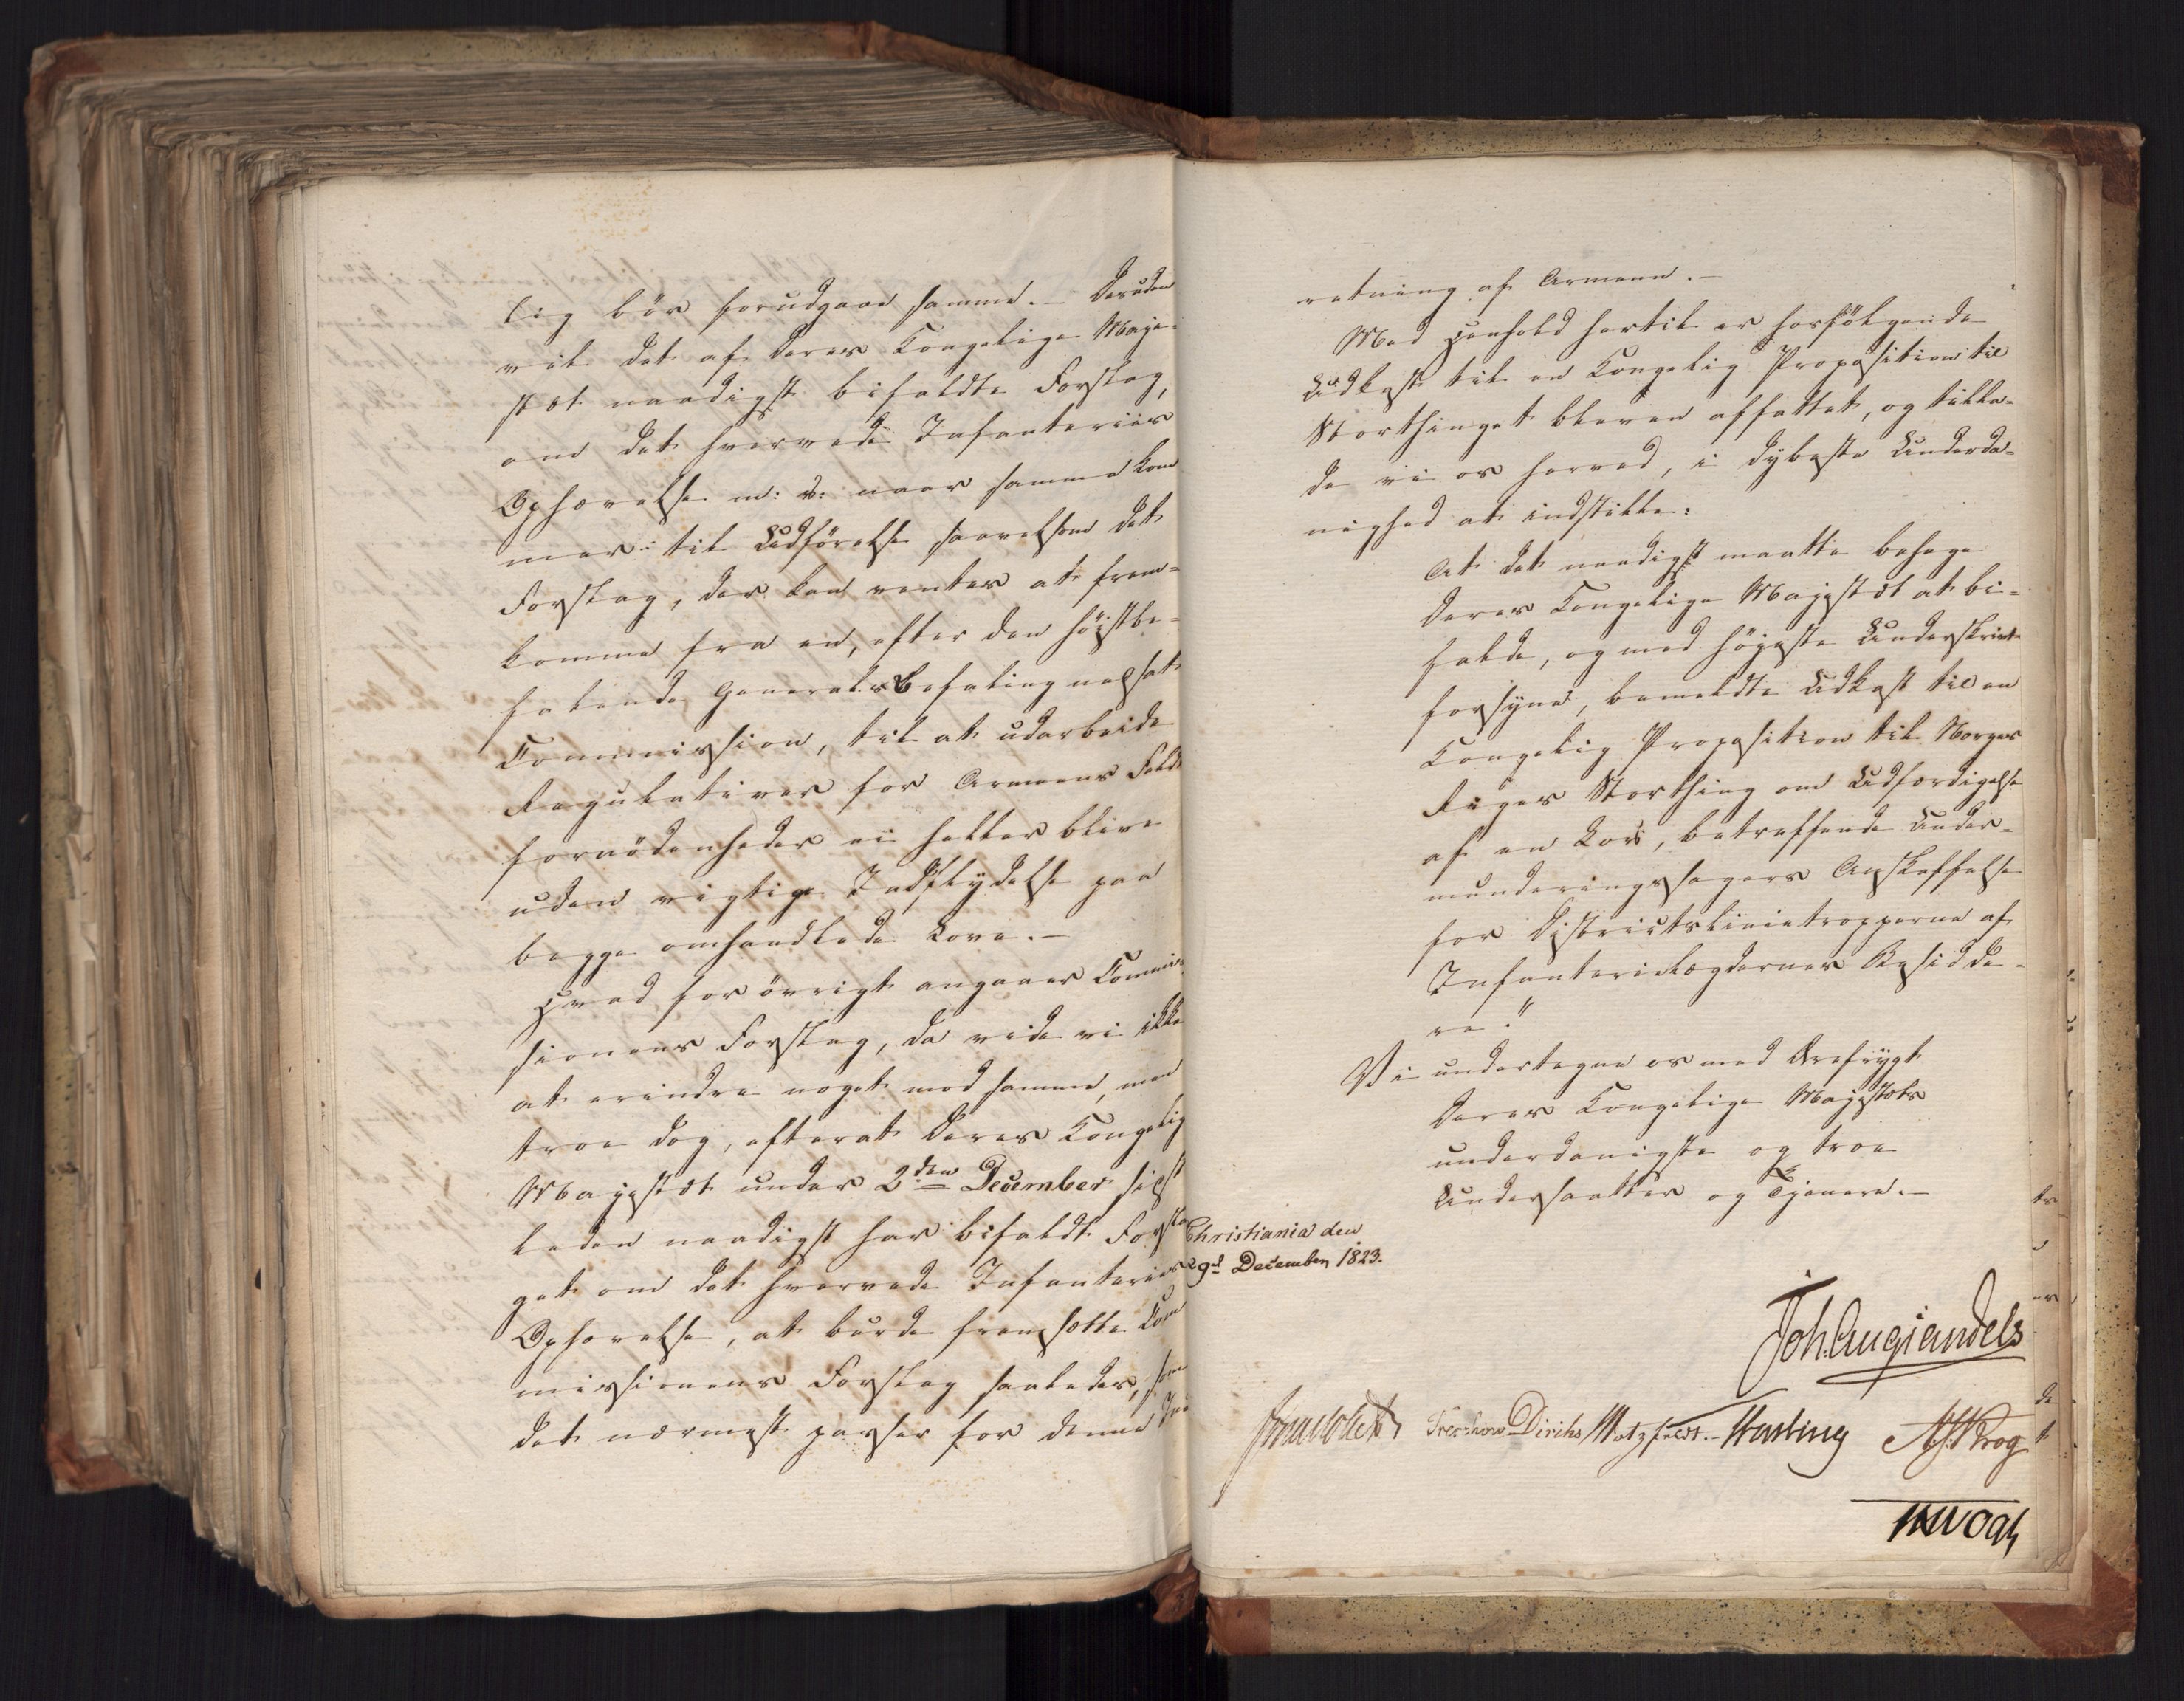 lig bör forudgaae samme. — Desuden
vil det af Deres Kongelige Maje-
stæt naadigst bifaldte Forslag,
om det hvervede Infanteries
Ophævelse m: v: naar samme kom
mer til Udförelse saavelsom det
Forslag, der kan ventes at frem-
komme fra en, efter den höistbe-
falende Generals Befaling nedsat
Commission, til at udarbeide
Regulativer for Armeens Feldt
fornödenheder ei heller blive
uden vigtig Indflydelse paa
begge omhandlede Love. —
Hvad for övrigt angaaer Commis-
sionens Forslag, da vide vi ikke
at erindre noget mod samme, men
troe dog, efterat Deres Kongelig
Majestæt under 2den December sidst
leden naadigst har bifaldt Forsla
get om det hvervede Infanteries
Ophævelse, at burde fremsætte Com
missionens Forslag saaledes, som
det nærmest passer for denne Ind
retning af Armeen. —
Med Henhold hertil er hosfölgende
Udkast til en Kongelig Proposition til
Storthinget bleven affattet, og tilla-
de vi os herved, i dybeste Underda-
nighed at indstille:
At det naadigst maatte behage
Deres Kongelige Majestæt at bi-
falde, og med höieste Underskrivt
forsyne, bemeldte Udkast til en
Kongelig Proposition til Norges
Riges Storthing om Udfærdigelse
af en Lov, betreffende Under-
munderingssagers Anskaffelse
for Districtslinietropperne af
Infanterielægdernes Besidde-
re."
Vi undertegne os med Ærefrygt
Deres Kongelige Majestæts
underdanigste og troe
Undersaatter og Tjenere. —
Christiania den
29d December 1823.
Joh. Aug Sandels
Jonas Collett Treschow Diriks Motzfeldt. Fasting N.J. Krog